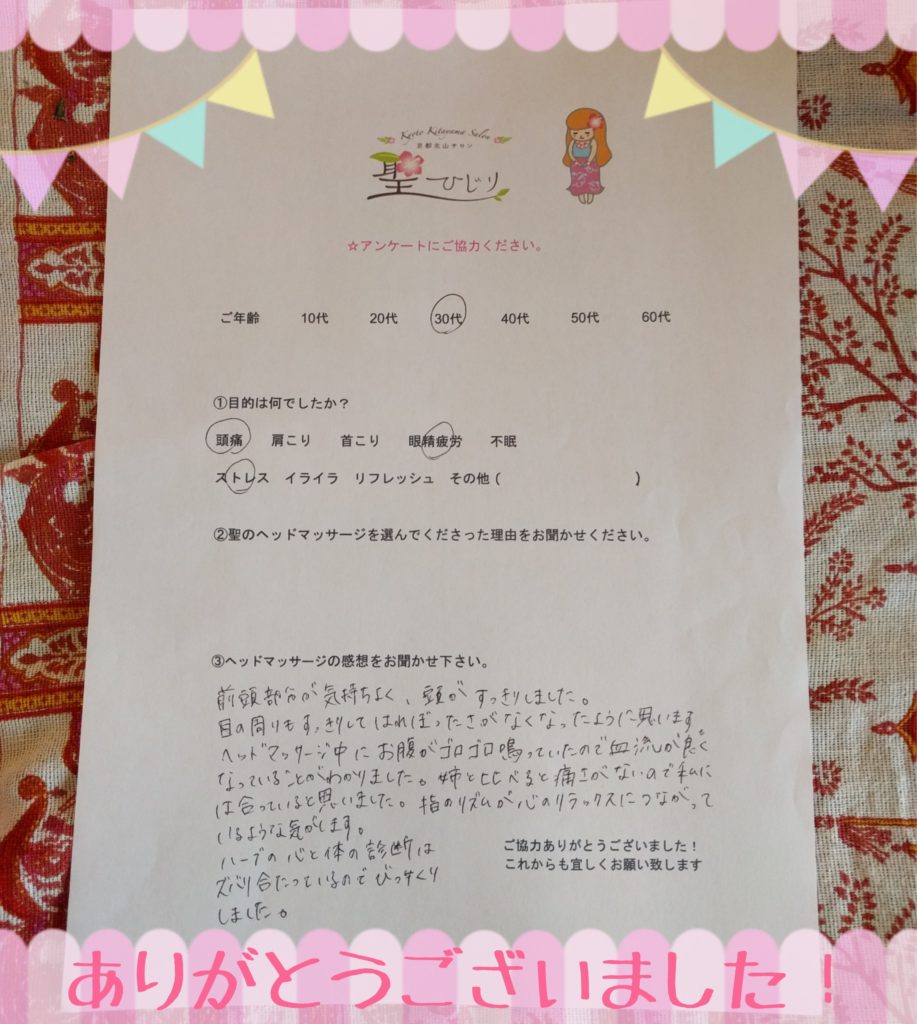 Kyoto Kitayama Salon
京都北山サロン
聖ひじり
☆アンケートにご協力ください。
ご年齢 10代 20代 30代 40代 50代 60代
①目的は何でしたか？
頭痛 肩こり 首こり 眼精疲労 不眠
ストレス イライラ リフレッシュ その他 ( )
②聖のヘッドマッサージを選んでくださった理由をお聞かせください。
③ヘッドマッサージの感想をお聞かせ下さい。
前頭部分が気持ちよく、頭がすっきりしました。
目の周りもすっきりしてはればったさがなくなったように思います
ヘッドマッサージ中にお腹がゴロゴロ鳴っていたので血流が良く
なっていることがわかりました。姉と比べると痛さがないので私に
は合っていると思いました。指のリズムが心のリラックスにつながって
いるような気がします。
ハーブの心と体の診断は
ズバリ合たっているのでびっくり
しました。
ご協力ありがとうございました！
これからも宜しくお願い致します
ありがとうございました！